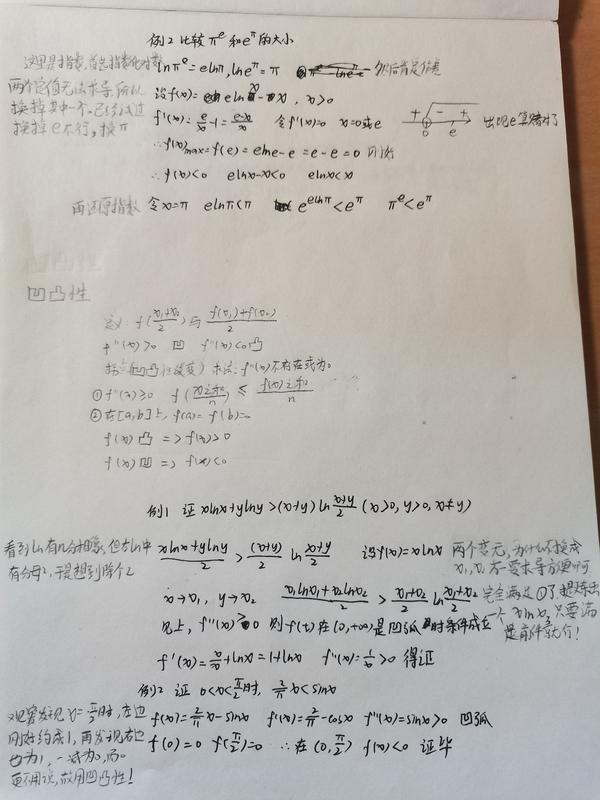 例2 比较 π^e 和 e^π 的大小
这里是指数,首先指数化对数
lnπ^e = elnπ, lne^π = π 然后肯定作差
两个定值无法求导,所以
换掉其中一个,已经试过
换掉e不行,换π
设f(x)= elnx - x, x>0
f'(x)= e/x - 1 = (e-x)/x 令f'(x)=0 x=0或e + - 0 e 出现e算猜对了
∴ f(x)max = f(e) = elne-e = e-e = 0
∴ f(x)<0 elnx-x<0 elnx<x
再还原指数 令x=π elnπ<π e^(elnπ)<e^π π^e<e^π
凹凸性
定义: f((x₁+x₂)/2) 与 (f(x₁)+f(x₂))/2
f''(x)>0 凹 f''(x)<0 凸
拐点(凹凸性改变) 求法: f''(x)不存在或为0
① f''(x)≥0 f(x之和/n) ≤ f(x)之和/n
② 在[a,b]上, f(a)=f(b)=0
f(x)凸 => f(x)>0
f(x)凹 => f(x)<0
例1 证 xlnx+ylny>(x+y)ln (x+y)/2 (x>0,y>0,x≠y)
看到ln有几分相像,但右ln中
有分母2,于是想到除个2
(xlnx+ylny)/2 > (x+y)/2 ln (x+y)/2 设f(x)=xlnx
两个变元,为什么不换成
x₁,x₂ 不要求导方便时可
x→x₁, y→x₂ (x₁lnx₁+x₂lnx₂)/2 > (x₁+x₂)/2 ln (x₁+x₂)/2
完全满足①了,提炼出
一个xlnx,只要满
足前件就行!
见上, f''(x)>0 则f(t)在(0,+∞)是凹弧 时条件成立
f'(x)= x/x + lnx = 1+lnx f''(x)= 1/x >0 得证
例2 证 0<x<π/2时, 2/π x<sinx
观察发现x=π/2时,左边
刚好约成1,再发现右边
也为1,一减为0,而0
更不用说,故用凹凸性!
f(x)= 2/π x - sinx f'(x)= 2/π - cosx f''(x)=sinx>0 凹弧
f(0)=0 f(π/2)=0 ∴在(0,π/2) f(x)<0 证毕